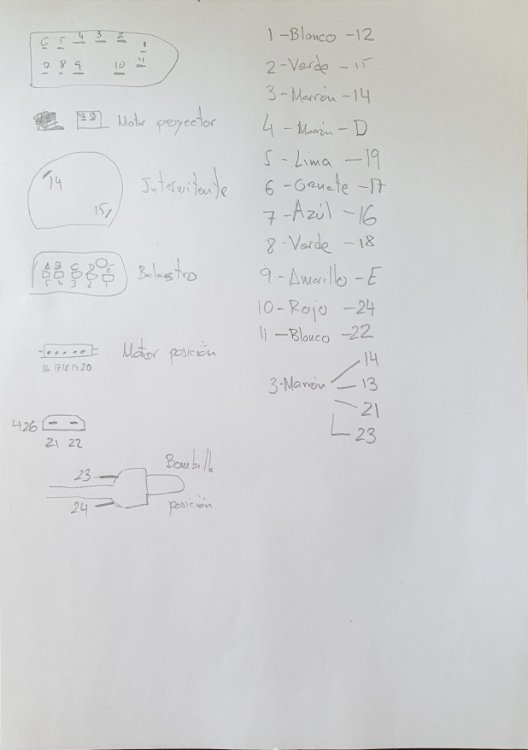 6 5 4 3 2 1
7 8 9 10 11
Motor proyector
14
15
Intermitente
A B C D E
5 4 3 2 1
Balastro
Motor posición
16 17 18 19 20
426
21 22
23
Bombilla
24
posición
1-Blanco-12
2-Verde-15
3-Marrón-14
4-Marrón-D
5-Lima-19
6-Granate-17
7-Azúl-16
8-Verde-18
9-Amarillo-E
10-Rojo-24
11-Blanco-22
14
3-Marrón
13
21
23